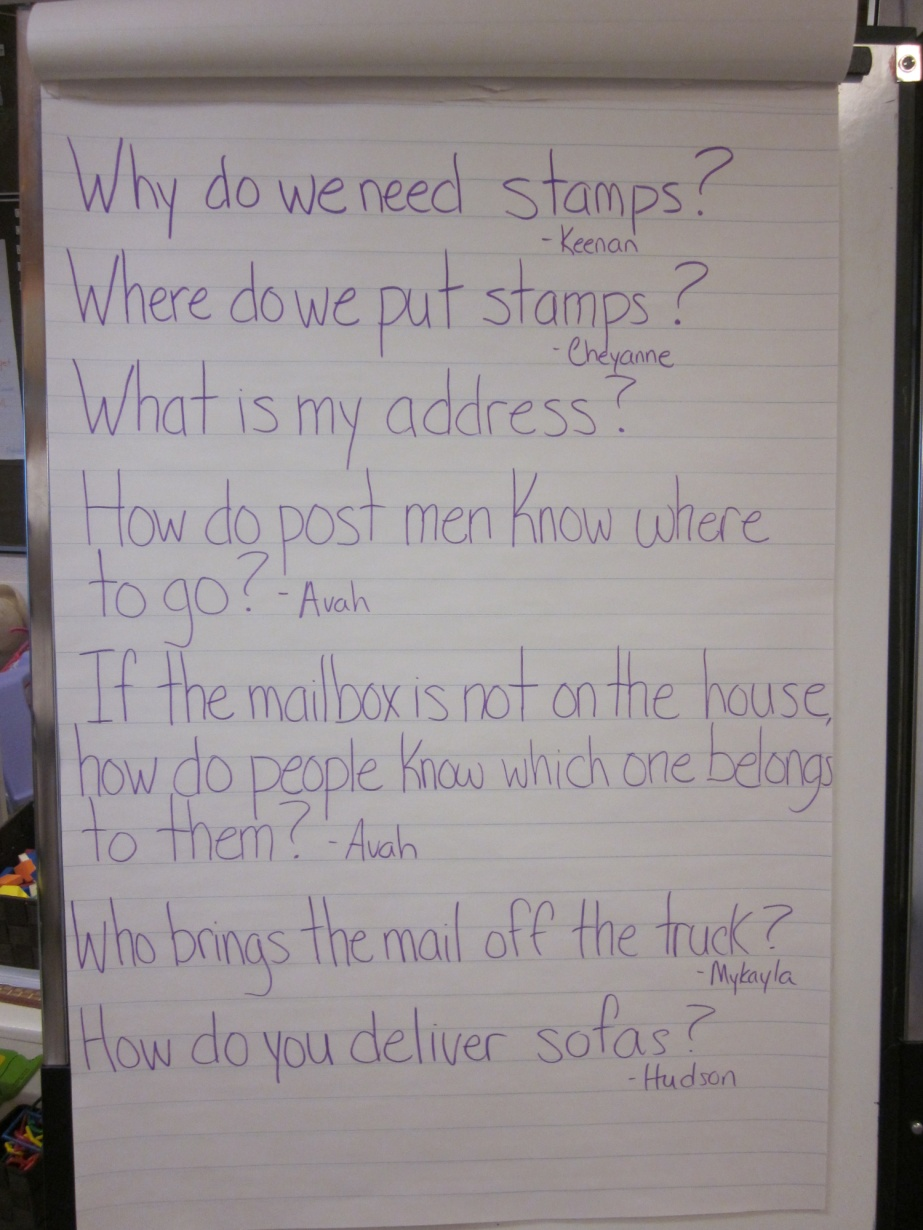 Why do we need stamps?
-Keenan
Where do we put stamps?
-Cheyanne
What is my address?
How do post men know where
to go? -Avah
If the mailbox is not on the house,
how do people know which one belongs
to them? -Avah
Who brings the mail off the truck?
-Mykayla
How do you deliver sofas?
-Hudson